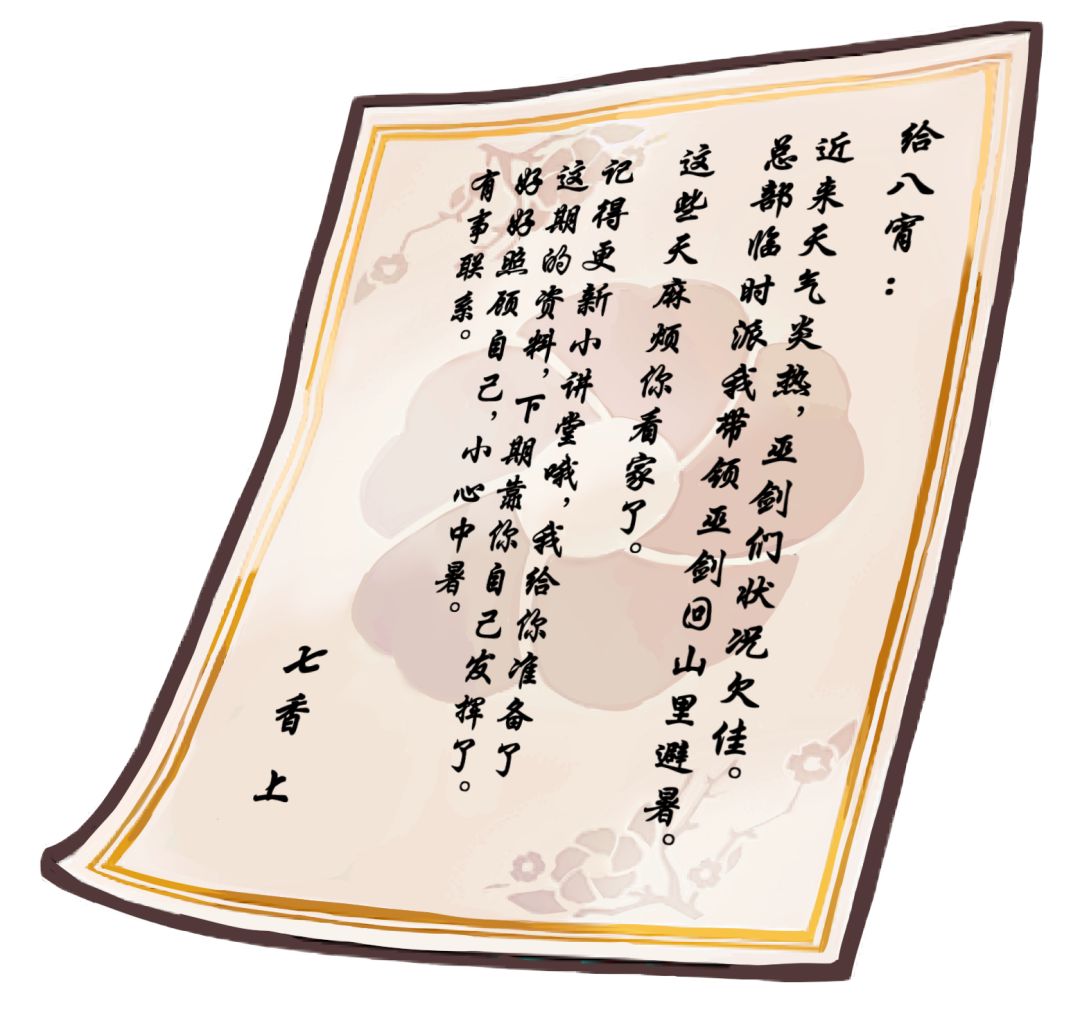 给八宵：
近来天气炎热，巫剑们状况欠佳。
总部临时派我带领巫剑回山里避暑。
这些天麻烦你看家了。
记得更新小讲堂哦，我给你准备了
这期的资料，下期靠你自己发挥了。
好好照顾自己，小心中暑。
有事联系。
七香 上